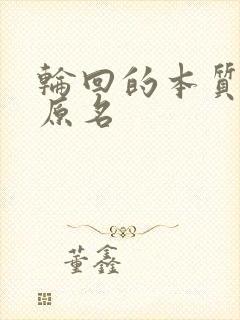 輪回的本質
原名
董鑫